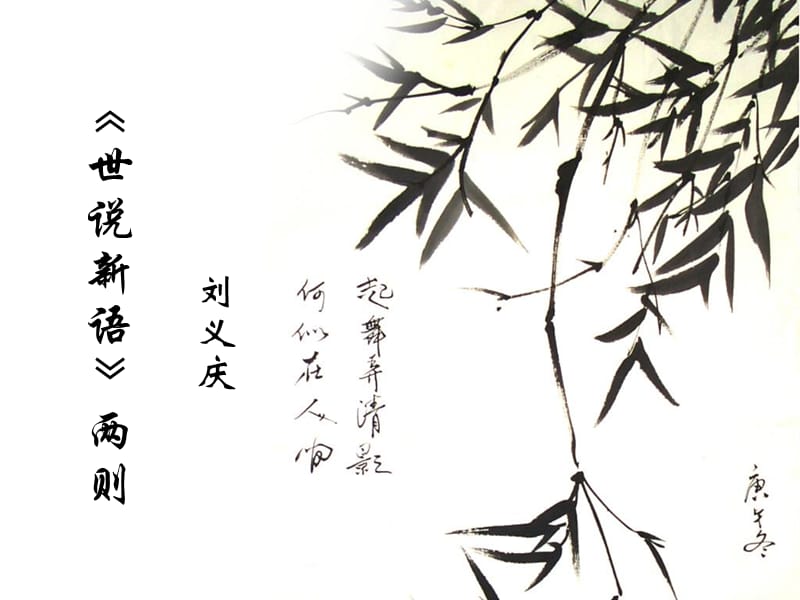 《世说新语》两则
刘义庆
起舞弄清影
何似在人间
庚午冬